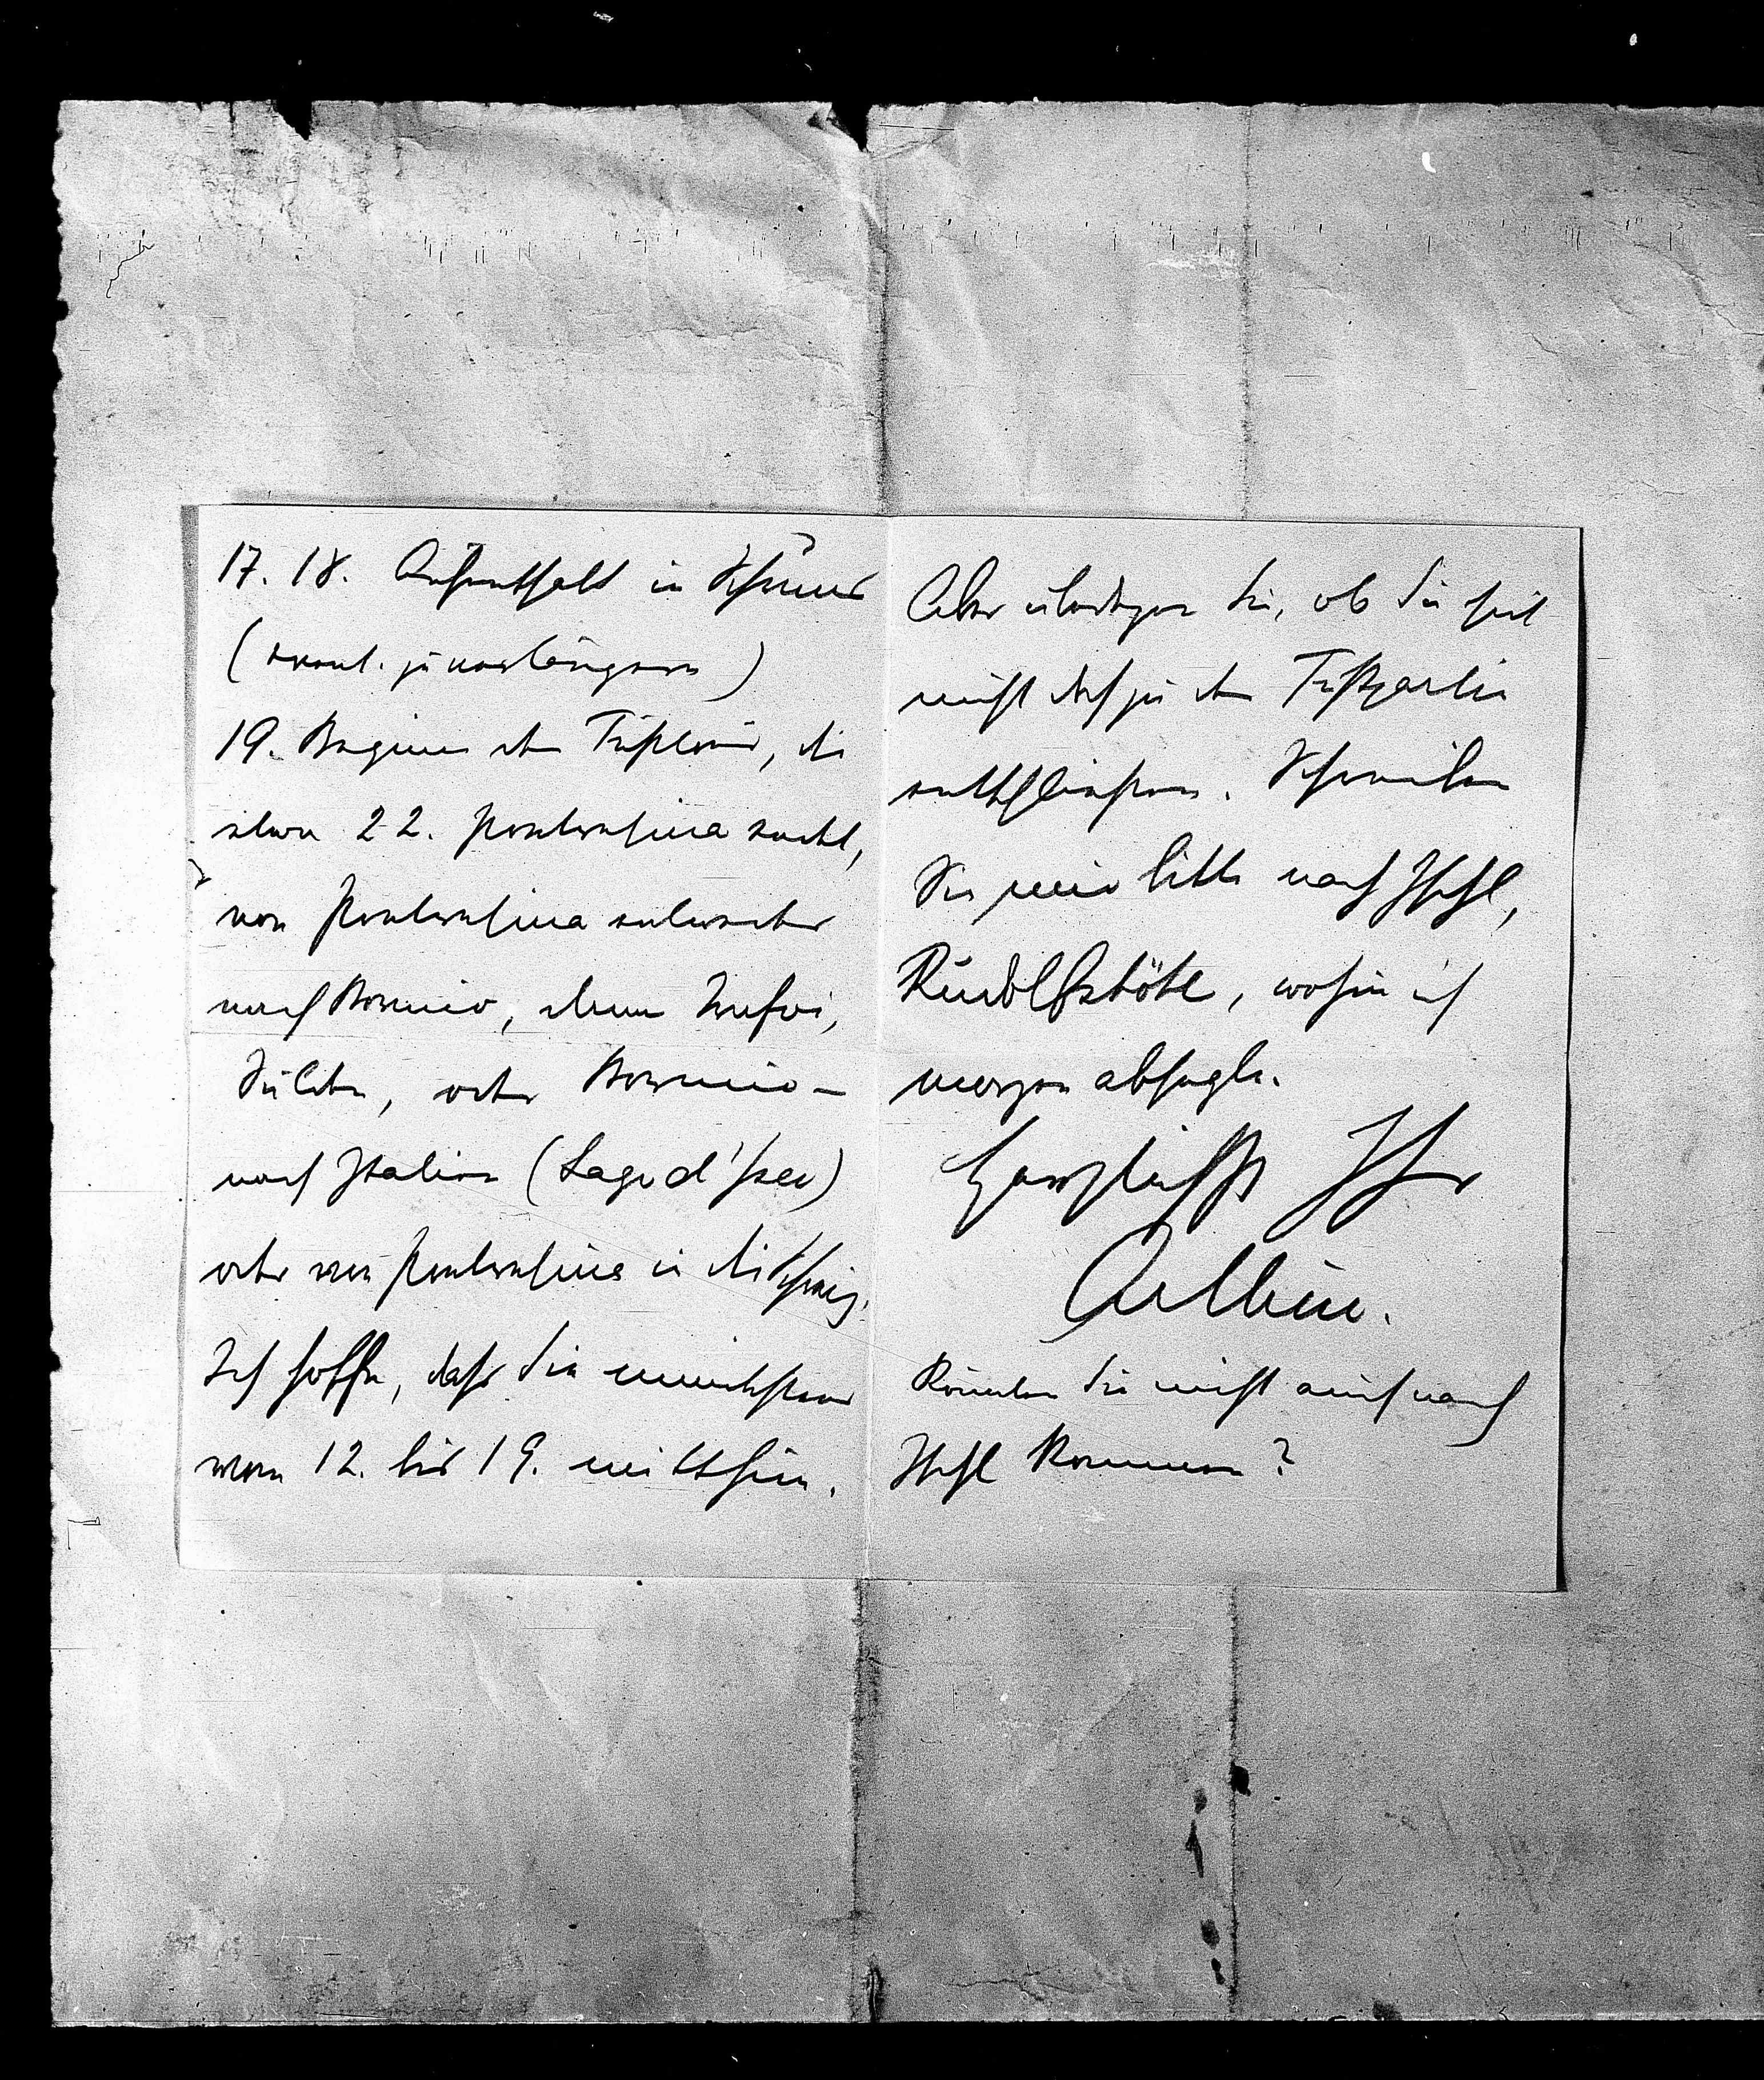 17. 18. Aufenthalt in Schuls
(event. zu verlängern)
19. Beginn der Fußtour, die
etwa 22. Pontresina endet,
von Pontresina entweder
nach Bormio, dann Trafoi,
Sulden, oder Bormio –
nach Italien (Lago d'Iseo)
oder von Pontresina in die Schweiz.
Ich hoffe, dass Sie mindestens
vom 12. bis 19. mitthun.
Aber überlegen Sie, ob Sie sich
nicht doch zu der Fußpartie
entschließen. Schreiben
Sie mir bitte nach Ischl,
Rudolfshöhe, wohin ich
morgen abfahre.
Herzlichst Ihr
Arthur.
Könnten Sie nicht auch nach
Ischl kommen?